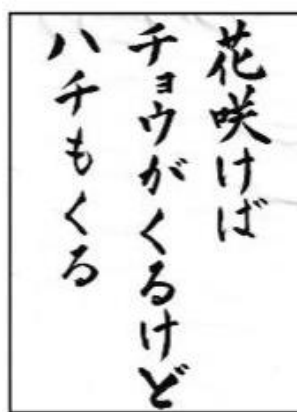 花咲けば
チョウがくるけど
ハチもくる